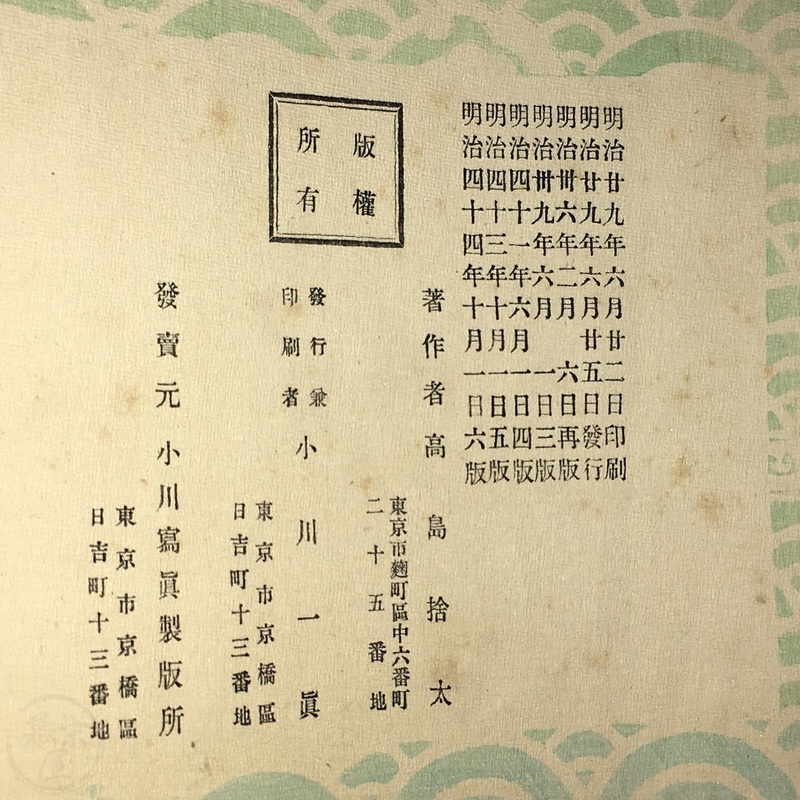 明治廿九年六月廿二日印刷
明治廿九年六月廿五日發行
明治卅六年二月六日再版
明治卅九年六月一日三版
明治四十一年六月一日四版
明治四十三年十月一日五版
明治四十四年十月一日六版
版權
所有
著作者 高島捨太
東京市麹町區中六番町
二十五番地
發行兼
印刷者
小川一眞
東京市京橋區
日吉町十三番地
發賣元 小川寫眞製版所
東京市京橋區
日吉町十三番地